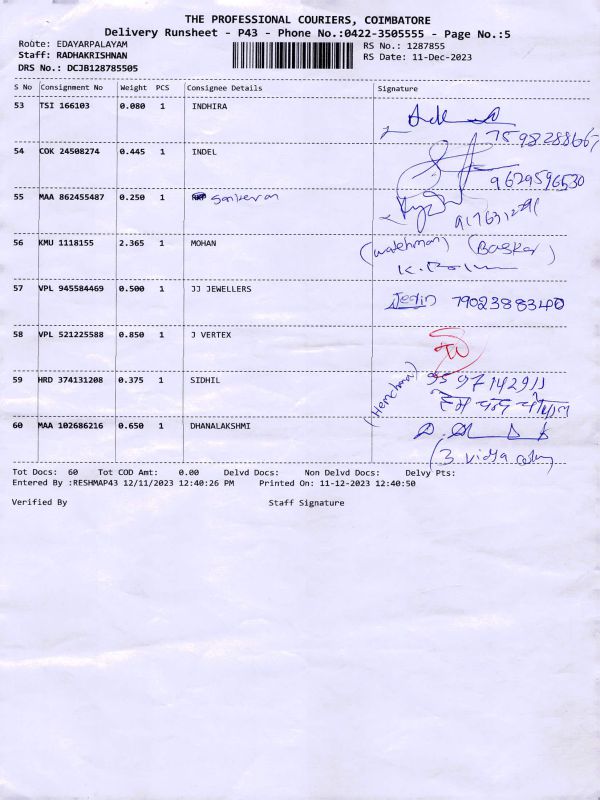 THE PROFESSIONAL COURIERS, COIMBATORE
Delivery Runsheet - P43 - Phone No.:0422-3505555 - Page No.:5
Route: EDAYARPALAYAM RS No.: 1287855
Staff: RADHAKRISHNAN RS Date: 11-Dec-2023
DRS No.: DCJB128785505
S No Consignment No Weight PCS Consignee Details Signature
53 TSI 166103 0.080 1 INDHIRA
7598288667
54 COK 24508274 0.445 1 INDEL
9629596530
55 MAA 862455487 0.250 1 Sankaran
56 KMU 1118155 2.365 1 MOHAN (watchman) (Baskar)
57 VPL 945584469 0.500 1 JJ JEWELLERS Jedin 7902388340
58 VPL 521225588 0.850 1 J VERTEX
59 HRD 374131208 0.375 1 SIDHIL
60 MAA 102686216 0.650 1 DHANALAKSHMI
Tot Docs: 60 Tot COD Amt: 0.00 Delvd Docs: Non Delvd Docs: Delvy Pts:
Entered By :RESHMAP43 12/11/2023 12:40:26 PM Printed On: 11-12-2023 12:40:50
Verified By Staff Signature